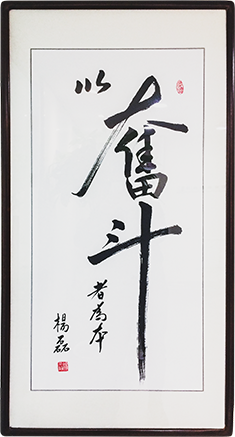 以
奋斗
者为本
楊磊